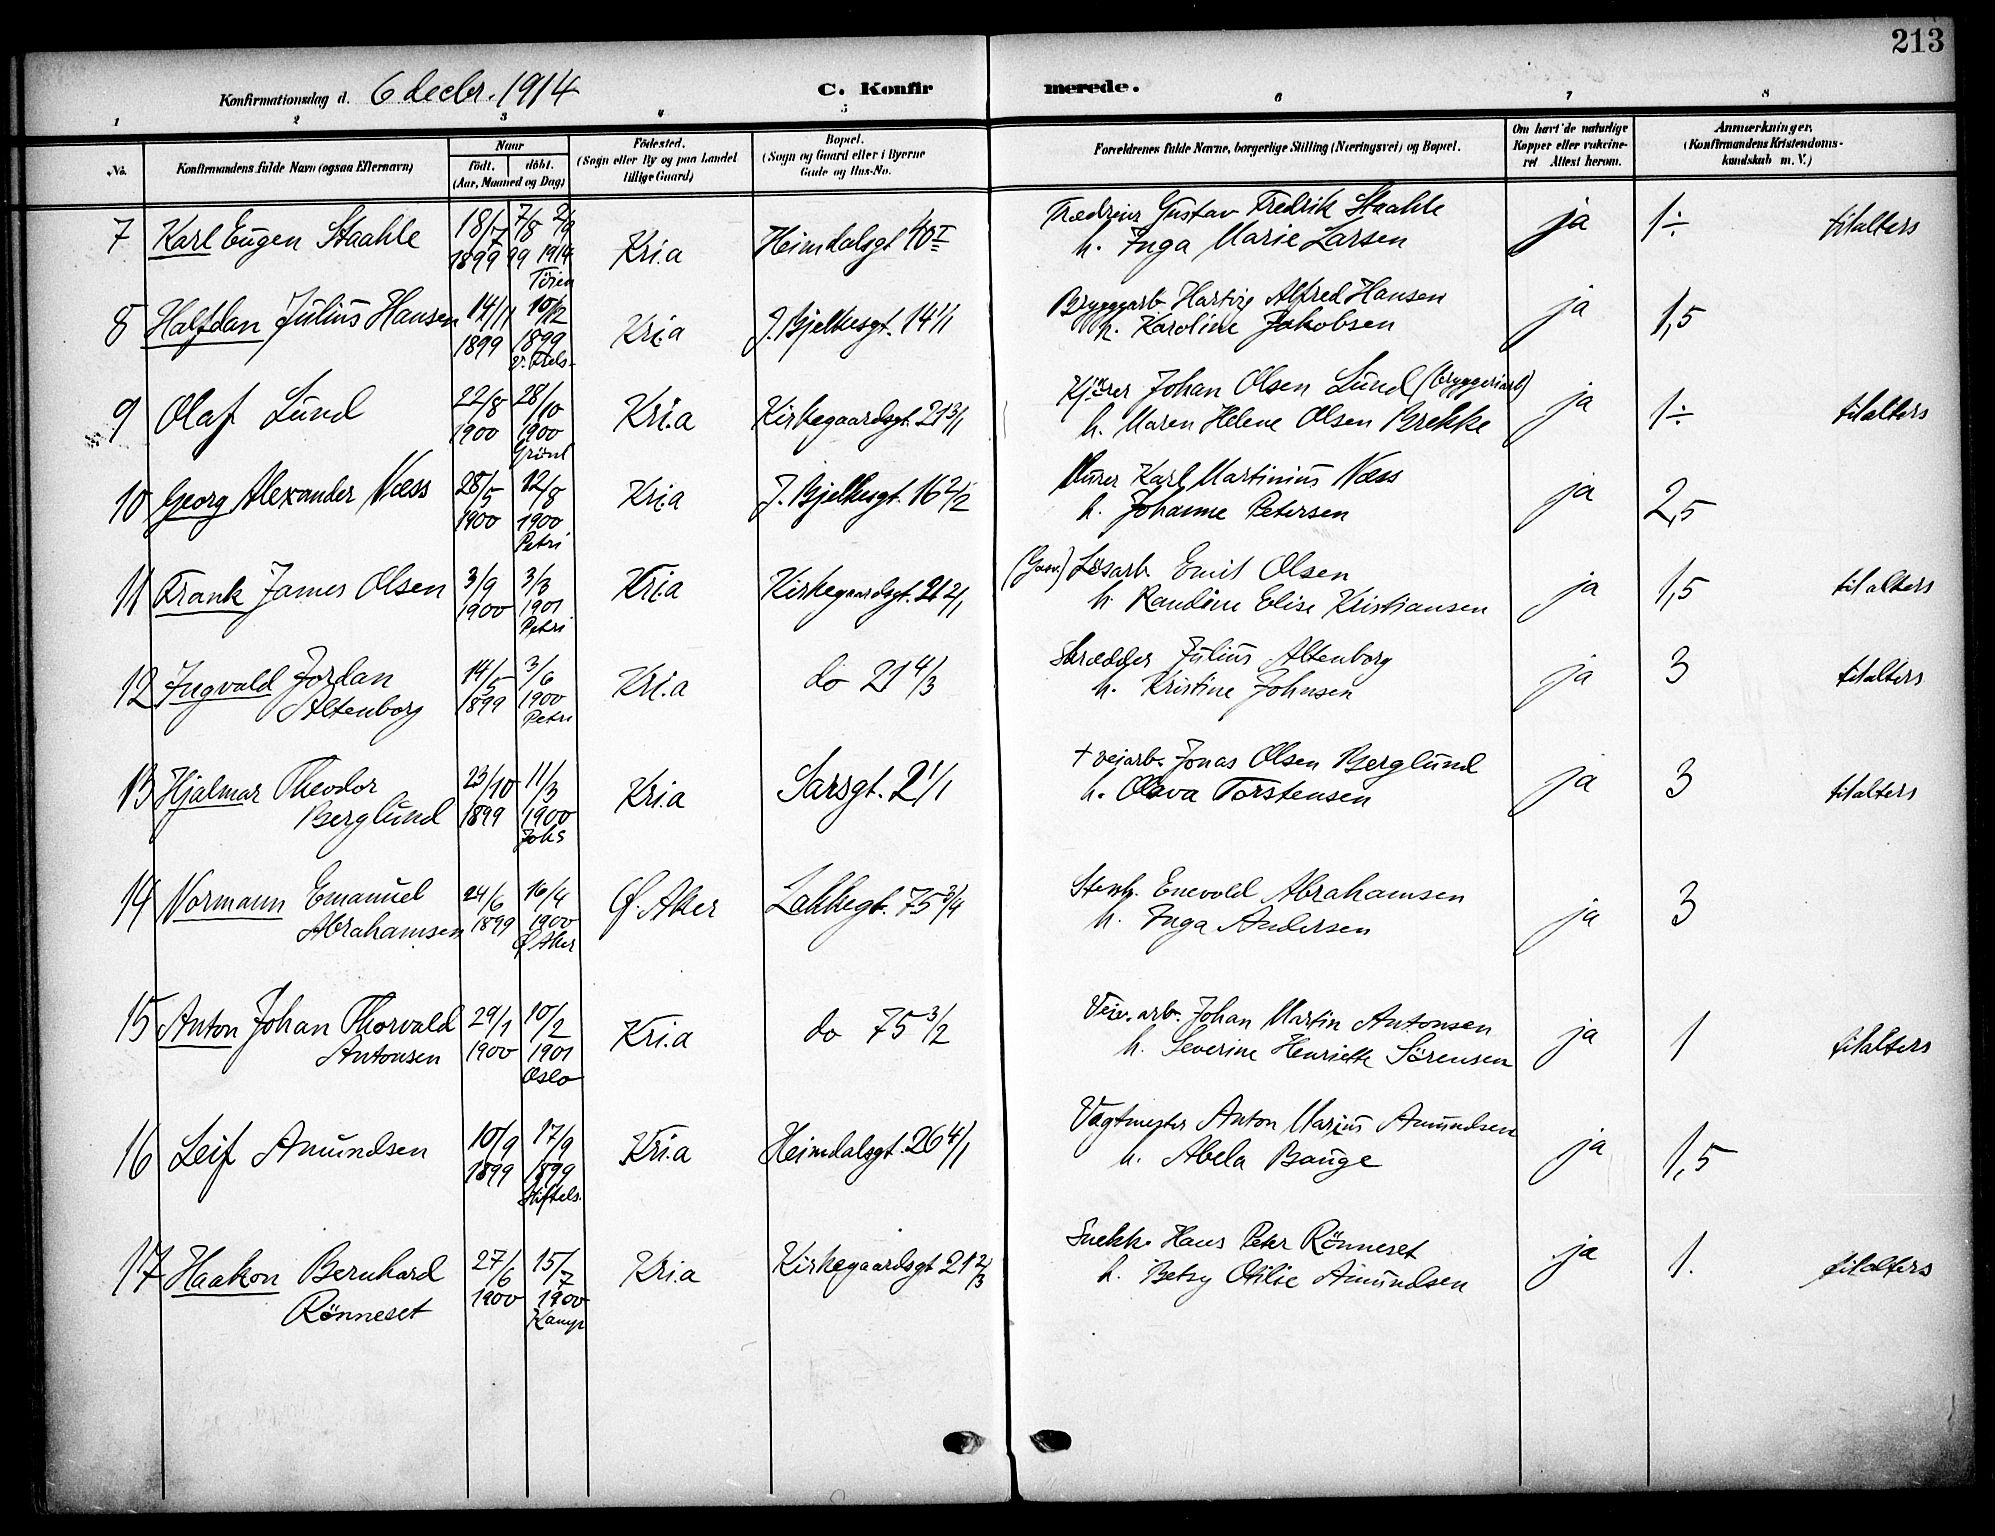 213
Konfirmationsdag d. 6 decbr. 1914 C. Konfirmerede.
1 2 3 4 5 6 7 8
No.
Konfirmandens fulde Navn (ogsaa Efternavn)
Naar
födt. döbt.
(Aar, Maaned og Dag)
Födested.
(Sogn eller By og paa Landet
tillige Gaard)
Bopæl.
(Sogn og Gaard eller i Byerne
Gade og Hus-No.
Forældrenes fulde Navne, borgerlige Stilling (Næringsvei) og Bopæl.
Om havt de naturlige
Kopper eller vakcine-
ret Attest herom.
Anmærkninger,
(Konfirmandens Kristendoms-
kundskab m. V.)
7 Karl Eugen Staahle 18/7 1899 7/8 99 2/9 1914 Töien Kri.a Heimdalsgt 40 I
Gustav Fredrik Staahle
h. Inga Marie Larsen ja 1÷ tilalters
8 Halfdan Julius Hansen 14/11 1899 10/12 1899 v. Frels. Kri.a J. Bjelkesgt. 14 1/1
Bryggearb. Hartvig Alfred Hansen
h. Karoline Jakobsen ja 1,5
9 Olaf Lund 22/8 1900 28/10 1900 Grönl Kri.a Kirkegaardsgt. 21 3/1
Kjörer Johan Olsen Lund (bryggeriarb)
h. Maren Helene Olsen Brekke ja 1÷ tilalters
10 Georg Alexander Næss 28/5 1900 12/8 1900 Petri Kri.a J. Bjelkesgt. 16 2/2
Murer Karl Martinius Næss
h. Johanne Petersen ja 2,5
11 Frank James Olsen 3/9 1900 3/3 1901 Petri Kri.a Kirkegaardsgt. 21 2/1
Lösarb. Emil Olsen
h. Randine Elise Kristiansen ja 1,5 tilalters
12 Ingvald Jordan
Altenborg 14/5 1899 3/6 1900 Petri Kri.a do 21 4/3
Skrædder Julius Altenborg
h. Kristine Johnsen ja 3 tilalters
13 Hjalmar Theodor
Berglund 23/10 1899 11/3 1900 Johs Kri.a Sarsgt. 2 1/1
+ veiarb. Jonas Olsen Berglund
h. Olava Torstensen ja 3 tilalters
14 Normann Emanuel
Abrahamsen 24/6 1899 16/4 1900 Ø. Aker Ø. Aker Lakkegt. 75 3/4
Stenh. Enevold Abrahamsen
h. Inga Andersen ja 3
15 Anton Johan Thorvald
Antonsen 29/1 1900 10/2 1901 Oslo Kri.a do 75 3/2
Veiv. arb. Johan Martin Antonsen
h. Severine Henriette Sörensen ja 1 tilalters
16 Leif Amundsen 10/9 1899 17/9 1899 Stiftels. Kri.a Heimdalsgt. 26 4/1
Vagtmester Anton Marius Amundsen
h. Abela Bauge ja 1,5
17 Haakon Bernhard
Rönneset 27/6 1900 15/7 1900 Kamp Kri.a Kirkegaardsgt 21 2/3
Snekk. Hans Peter Rönneset
h. Betzy Otilie Amundsen ja 1. tilalters